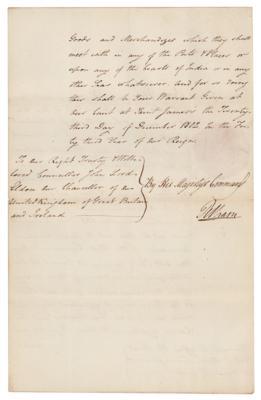 Goods and Merchandizes which they shall
meet with in any of the Ports & Places or
upon any of the Coasts of India or in any
other Seas whatsoever and for so doing
this shall be Your Warrant Given at
our Court at Saint James's the Twenty
third Day of December 1802 in the For
ty third Year of our Reign
To our Right Trusty & Well
beloved Councillor John Lord
Eldon our Chancellor of our
United Kingdom of Great Britain
and Ireland
By His Majestys Command